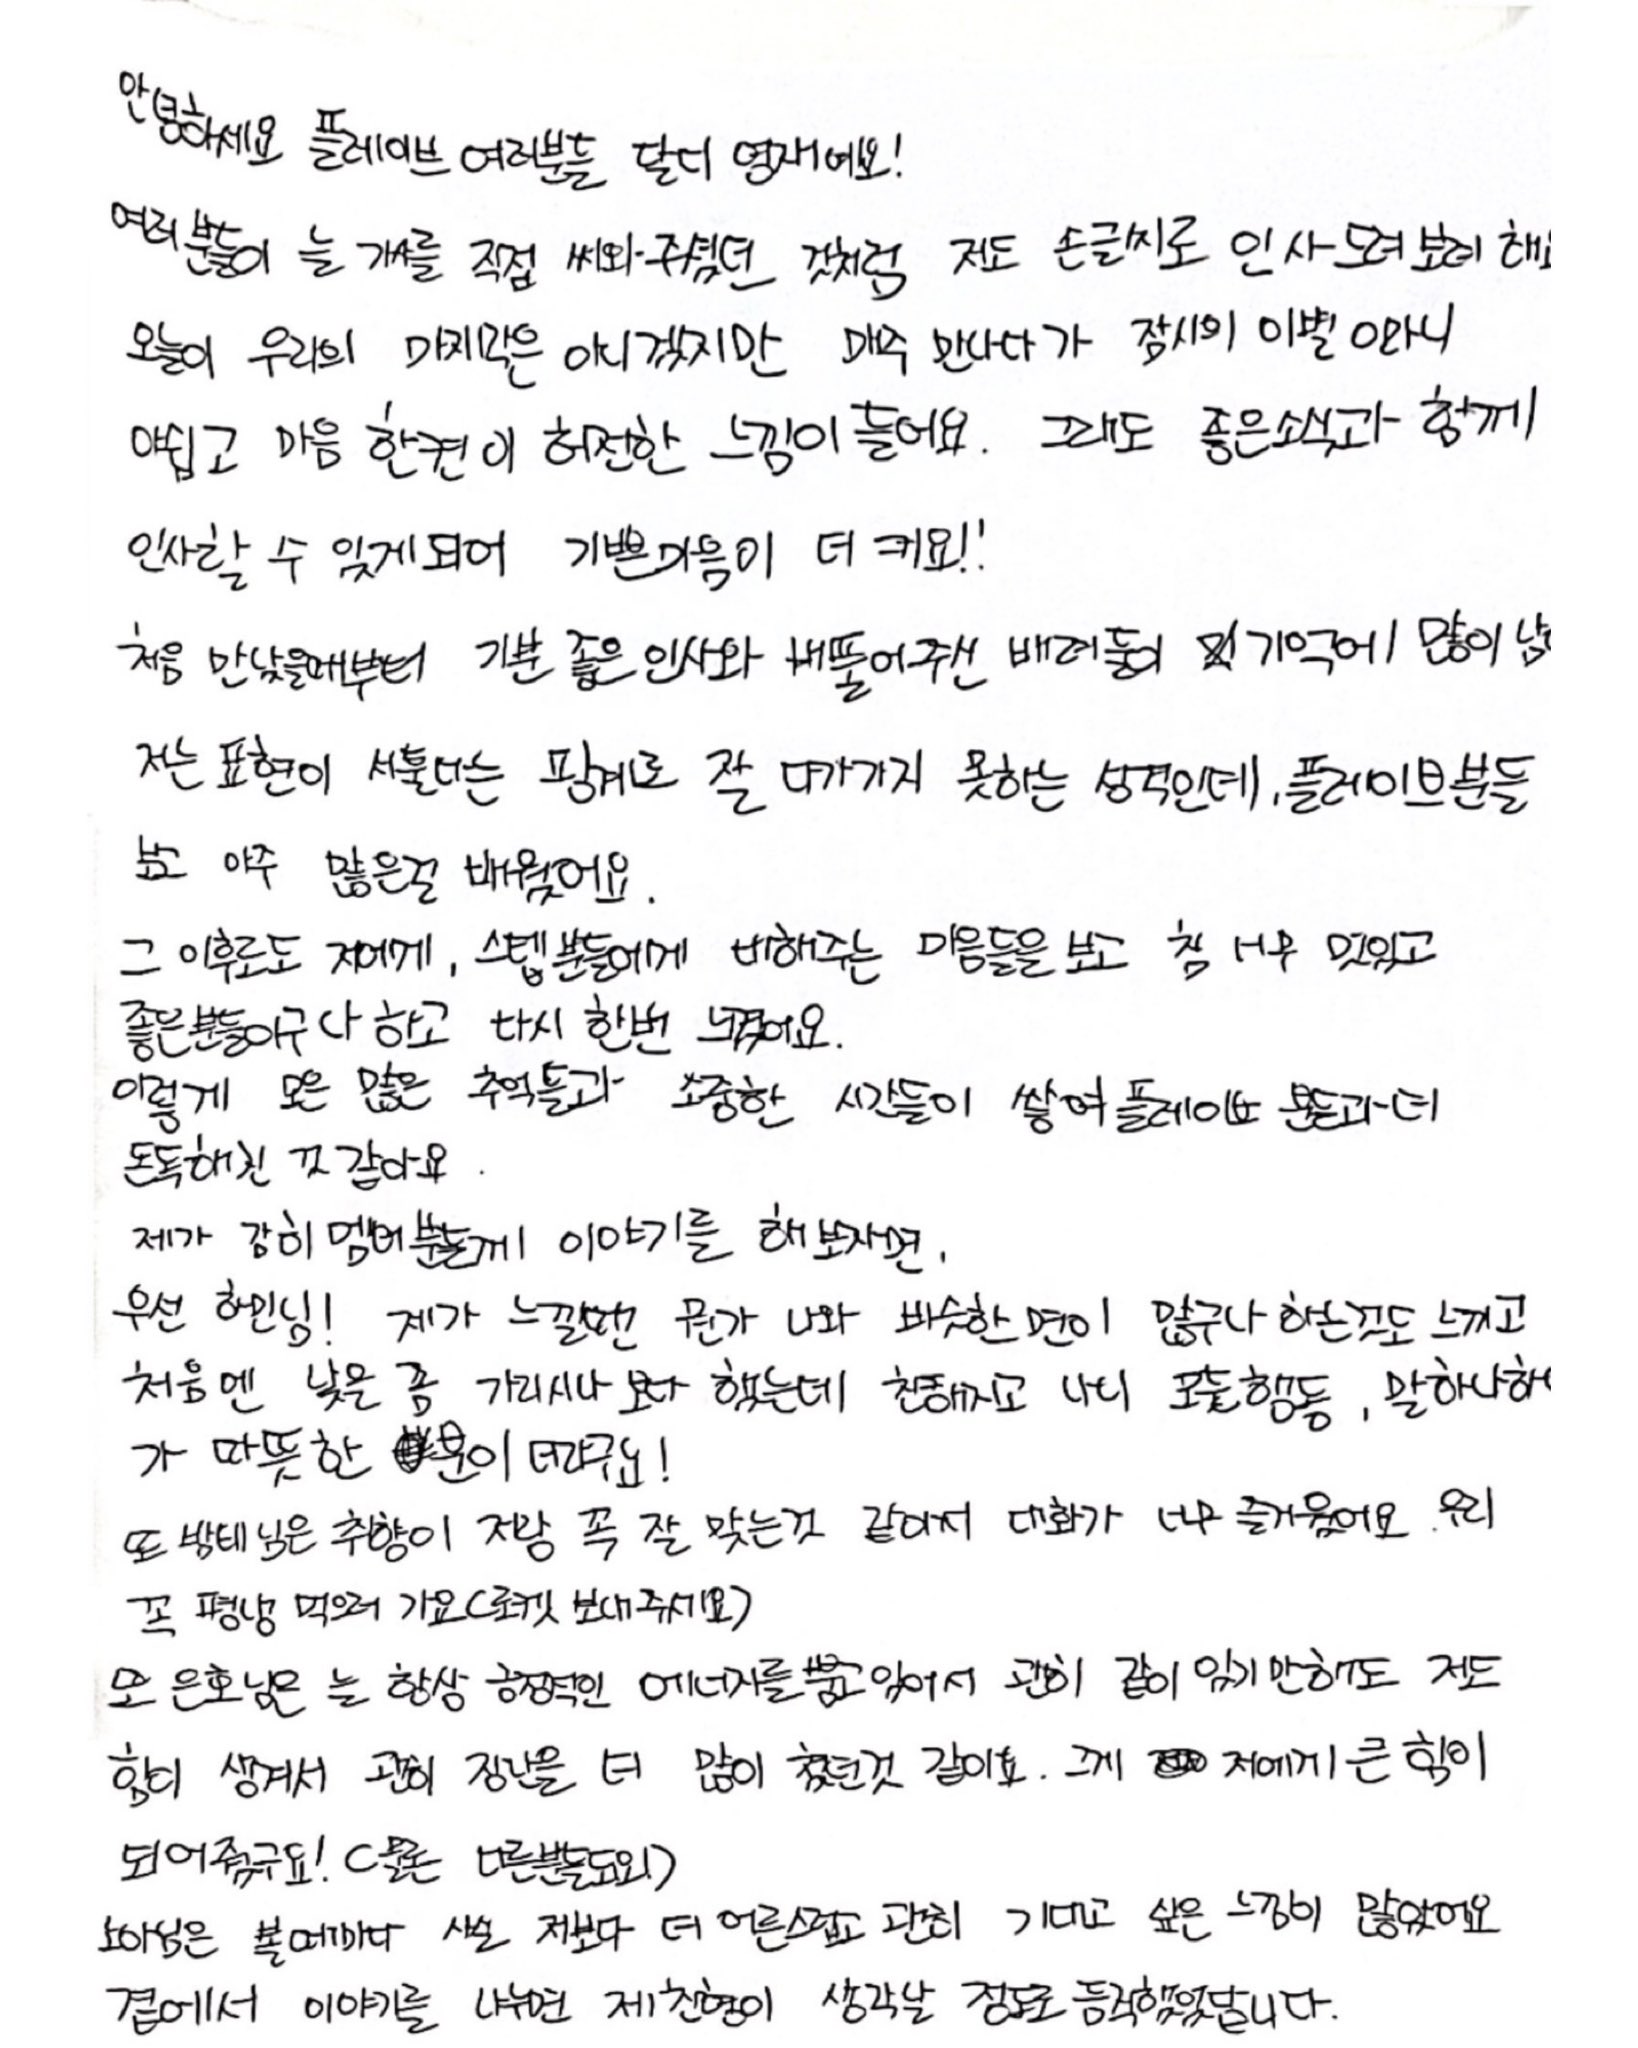 안녕하세요 플레이브 여러분들 달디 영재에요!
여러분들이 늘 가사를 직접 써와주셨던 것처럼 저도 손글씨로 인사드려보려 해요
오늘이 우리의 마지막은 아니겠지만 매주 만나다가 잠시의 이별이라니
아쉽고 마음 한켠이 허전한 느낌이 들어요. 그래도 좋은소식과 함께
인사할 수 있게되어 기쁜마음이 더 커요!!
처음 만났을때부터 기분 좋은 인사와 베풀어주신 배려들이 기억에 많이 남
저는 표현이 서툴다는 핑계로 잘 다가가지 못하는 성격인데, 플레이브분들
보고 아주 많은걸 배웠어요.
그 이후로도 저에게, 스텝분들에게 대해주는 마음들을 보고 참 너무 멋있고
좋은분들이구나 하고 다시 한번 느꼈어요.
이렇게 모은 많은 추억들과 소중한 시간들이 쌓여 플레이브 분들과 더
돈독해진 것 같아요.
제가 감히 멤버분들께 이야기를 해보자면,
우선 하민님! 제가 느낄땐 뭔가 나와 비슷한 면이 많구나 하는것도 느끼고
처음엔 낯을 좀 가리시나 보다 했는데 친해지고 나니 모든 행동, 말하나하나
가 따뜻한 분이더라구요!
또 밤비님은 취향이 저랑 꼭 잘 맞는것 같아서 대화가 너무 즐거웠어요 우리
꼭 평냉 먹으러 가요(로켓 보내주세요)
또 은호님은 늘 항상 긍정적인 에너지를 뿜고있어서 괜히 같이 있기만해도 저도
힘이 생겨서 괜히 장난을 더 많이 쳤던것 같아요. 그게 저에게 큰 힘이
되어줬구요! (물론 다른분들도요)
노아님은 볼때마다 사실 저보다 더 어른스럽고 괜히 기대고 싶은 느낌이 많았어요
곁에서 이야기를 나누면 제 친형이 생각날 정도로 듬직했었답니다.